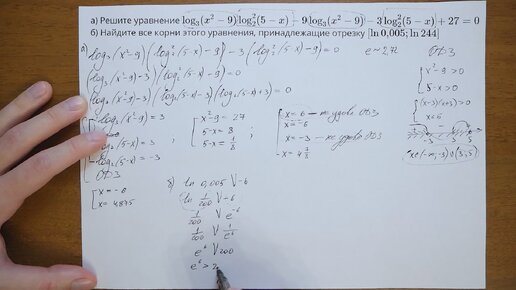 а) Решите уравнение log₃(x² − 9) log₂²(5 − x) − 9 log₃(x² − 9) − 3 log₂²(5 − x) + 27 = 0
б) Найдите все корни этого уравнения, принадлежащие отрезку [ln 0,005; ln 244]
а)
log₃(x²−9)(log₂²(5−x)−9) − 3(log₂²(5−x)−9) = 0
(log₃(x²−9)−3)(log₂²(5−x)−9) = 0
(log₃(x²−9)−3)(log₂(5−x)−3)(log₂(5−x)+3) = 0
log₃(x²−9) = 3
log₂(5−x) = 3
log₂(5−x) = −3
ОДЗ
x²−9 = 27
5−x = 8
5−x = 1/8
x = 6 — не удовл ОДЗ
x = −6
x = −3 — не удовл ОДЗ
x = 4 7/8
x = −6
x = 4,875
e ≈ 2,72
ОДЗ
x²−9 > 0
5−x > 0
(x−3)(x+3) > 0
x < 5
x∈(−∞;−3)∪(3;5)
б) ln 0,005 V −6
ln 1/200 V −6
1/200 V e⁻⁶
1/200 V 1/e⁶
e⁶ V 200
e⁶ > 2